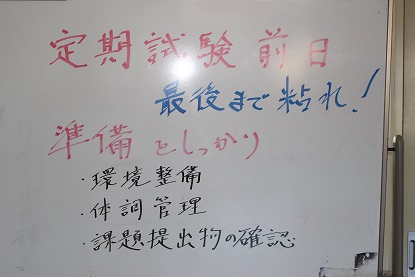 定期試験前日
最後まで粘れ!
準備をしっかり
・環境整備
・体調管理
・課題提出物の確認